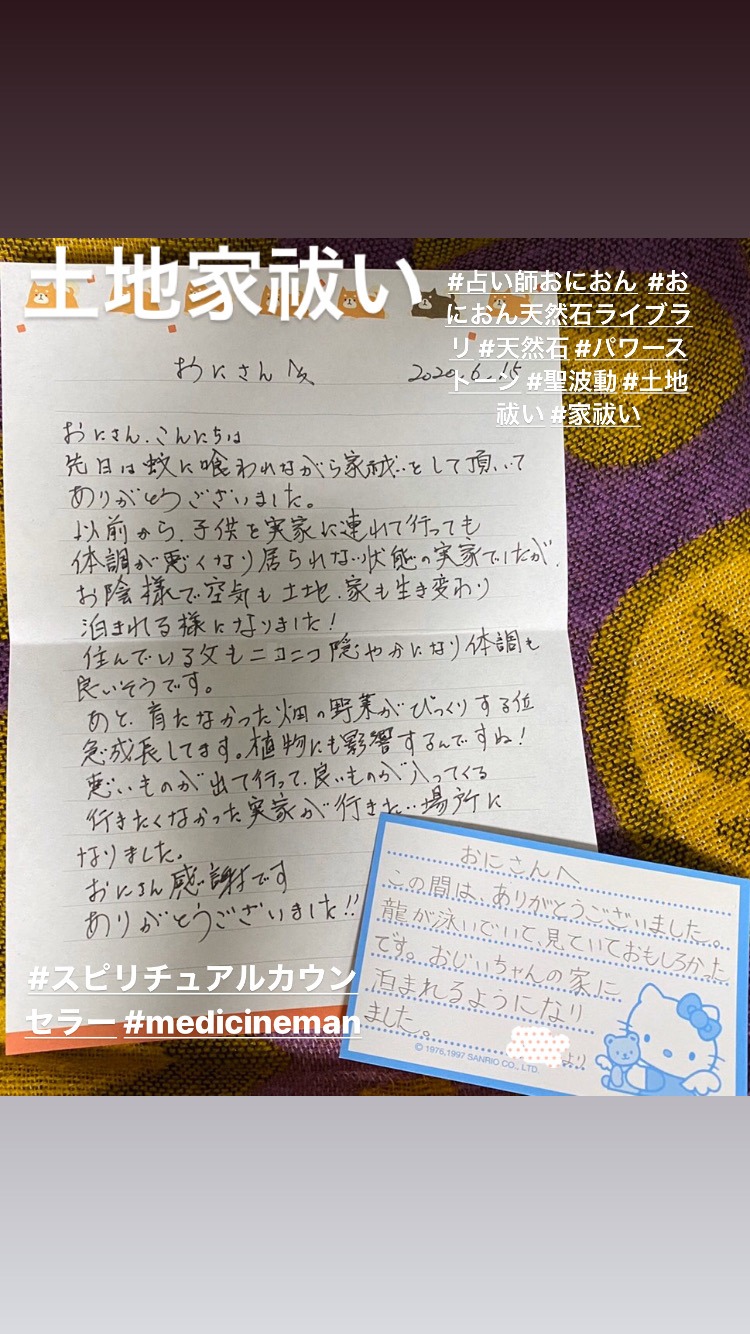 土地家祓い
#占い師おにおん #お
におん天然石ライブラ
リ #天然石 #パワース
トーン #聖波動 #土地
祓い #家祓い
おにさんへ
2020.6.15
おにさん、こんにちは
先日は蚊に喰われながら家祓いをして頂いて
ありがとうございました。
以前から、子供を実家に連れて行っても
体調が悪くなり居られない状態の実家でしたが、
お陰様で空気も土地、家も生き変わり
泊まれる様になりました!
住んでいる父もニコニコ穏やかになり体調も
良いそうです。
あと、育たなかった畑の野菜がびっくりする位
急成長してます。植物にも影響するんですね!
悪いものが出て行って、良いものが入ってくる
行きたくなかった実家が行きたい場所に
なりました。
おにさん感謝です
ありがとうございました!!
おにさんへ
この間は、ありがとうございました。
龍が泳いでいて、見ていておもしろかった
です。おじいちゃんの家に
泊まれるようになり
ました。
より
© 1976,1997 SANRIO CO., LTD.
#スピリチュアルカウン
セラー #medicineman